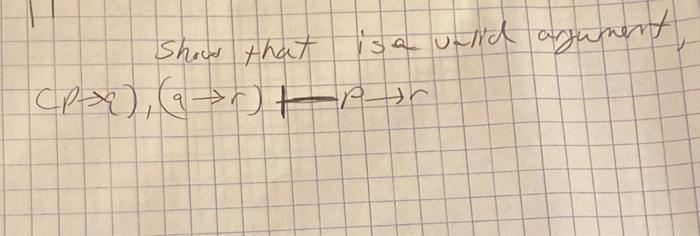 Show that is a valid argument,
(p→q), (q→r) ⊢ p→r